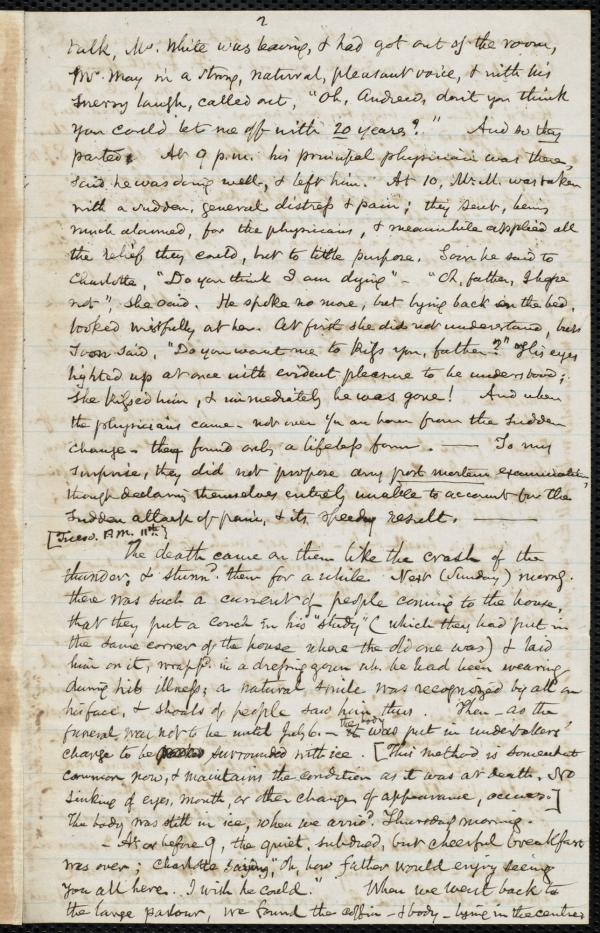 2
talk, Mr. White was leaving, & had got out of the room,
Mr. May in a strong, natural, pleasant voice, & with his
merry laugh, called out, "Oh, Andrew, don't you think
you could let me off with 20 years?" And so they
parted. At 9 p.m. his principal physician was there,
said he was doing well, & left him. At 10, Mr. M. was taken
with a sudden, general distress & pain; they sent, being
much alarmed, for the physicians, & meanwhile applied all
the relief they could, but to little purpose. Soon he said to
Charlotte, "Do you think I am dying" – "Oh, father, I hope
not", she said. He spoke no more, but lying back on the bed,
looked wistfully at her. At first she did not understand, but
soon said, "Do you want me to kiss you, father?" His eyes
lighted up at once with evident pleasure to be understood;
she kissed him, & immediately he was gone! And when
the physicians came – not over ½ an hour from the sudden
change – they found only a lifeless form. — To my
surprise, they did not propose any post mortem examination,
though declaring themselves entirely unable to account for the
sudden attack of pain, & its speedy result. —
[Tuesd. A.M. 11th.]
The death came on them like the crash of the
thunder, & stunn'd them for a while. Next (Sunday) morng.
there was such a current of people coming to the house,
that they put a couch in his "study" (which they had put in
the same corner of the house where the old one was) & laid
him on it, wrapp'd in a dressing gown wh. he had been wearing
during his illness; a natural smile was recognized by all on
his face, & shoals of people saw him thus. Then – as the
funeral was not to be until July 6. – the body was put in undertakers'
charge to be surrounded with ice. [This method is somewhat
common now, & maintains the condition as it was at death. No
sinking of eyes, mouth, or other change of appearance, occurs.]
The body was still in ice, when we arriv'd Thursday morning.
– At or before 9, the quiet, subdued, but cheerful breakfast
was over; Charlotte saying, "Oh, how father would enjoy seeing
you all here. I wish he could." When we went back to
the large parlour, we found the coffin – & body – lying in the centre,